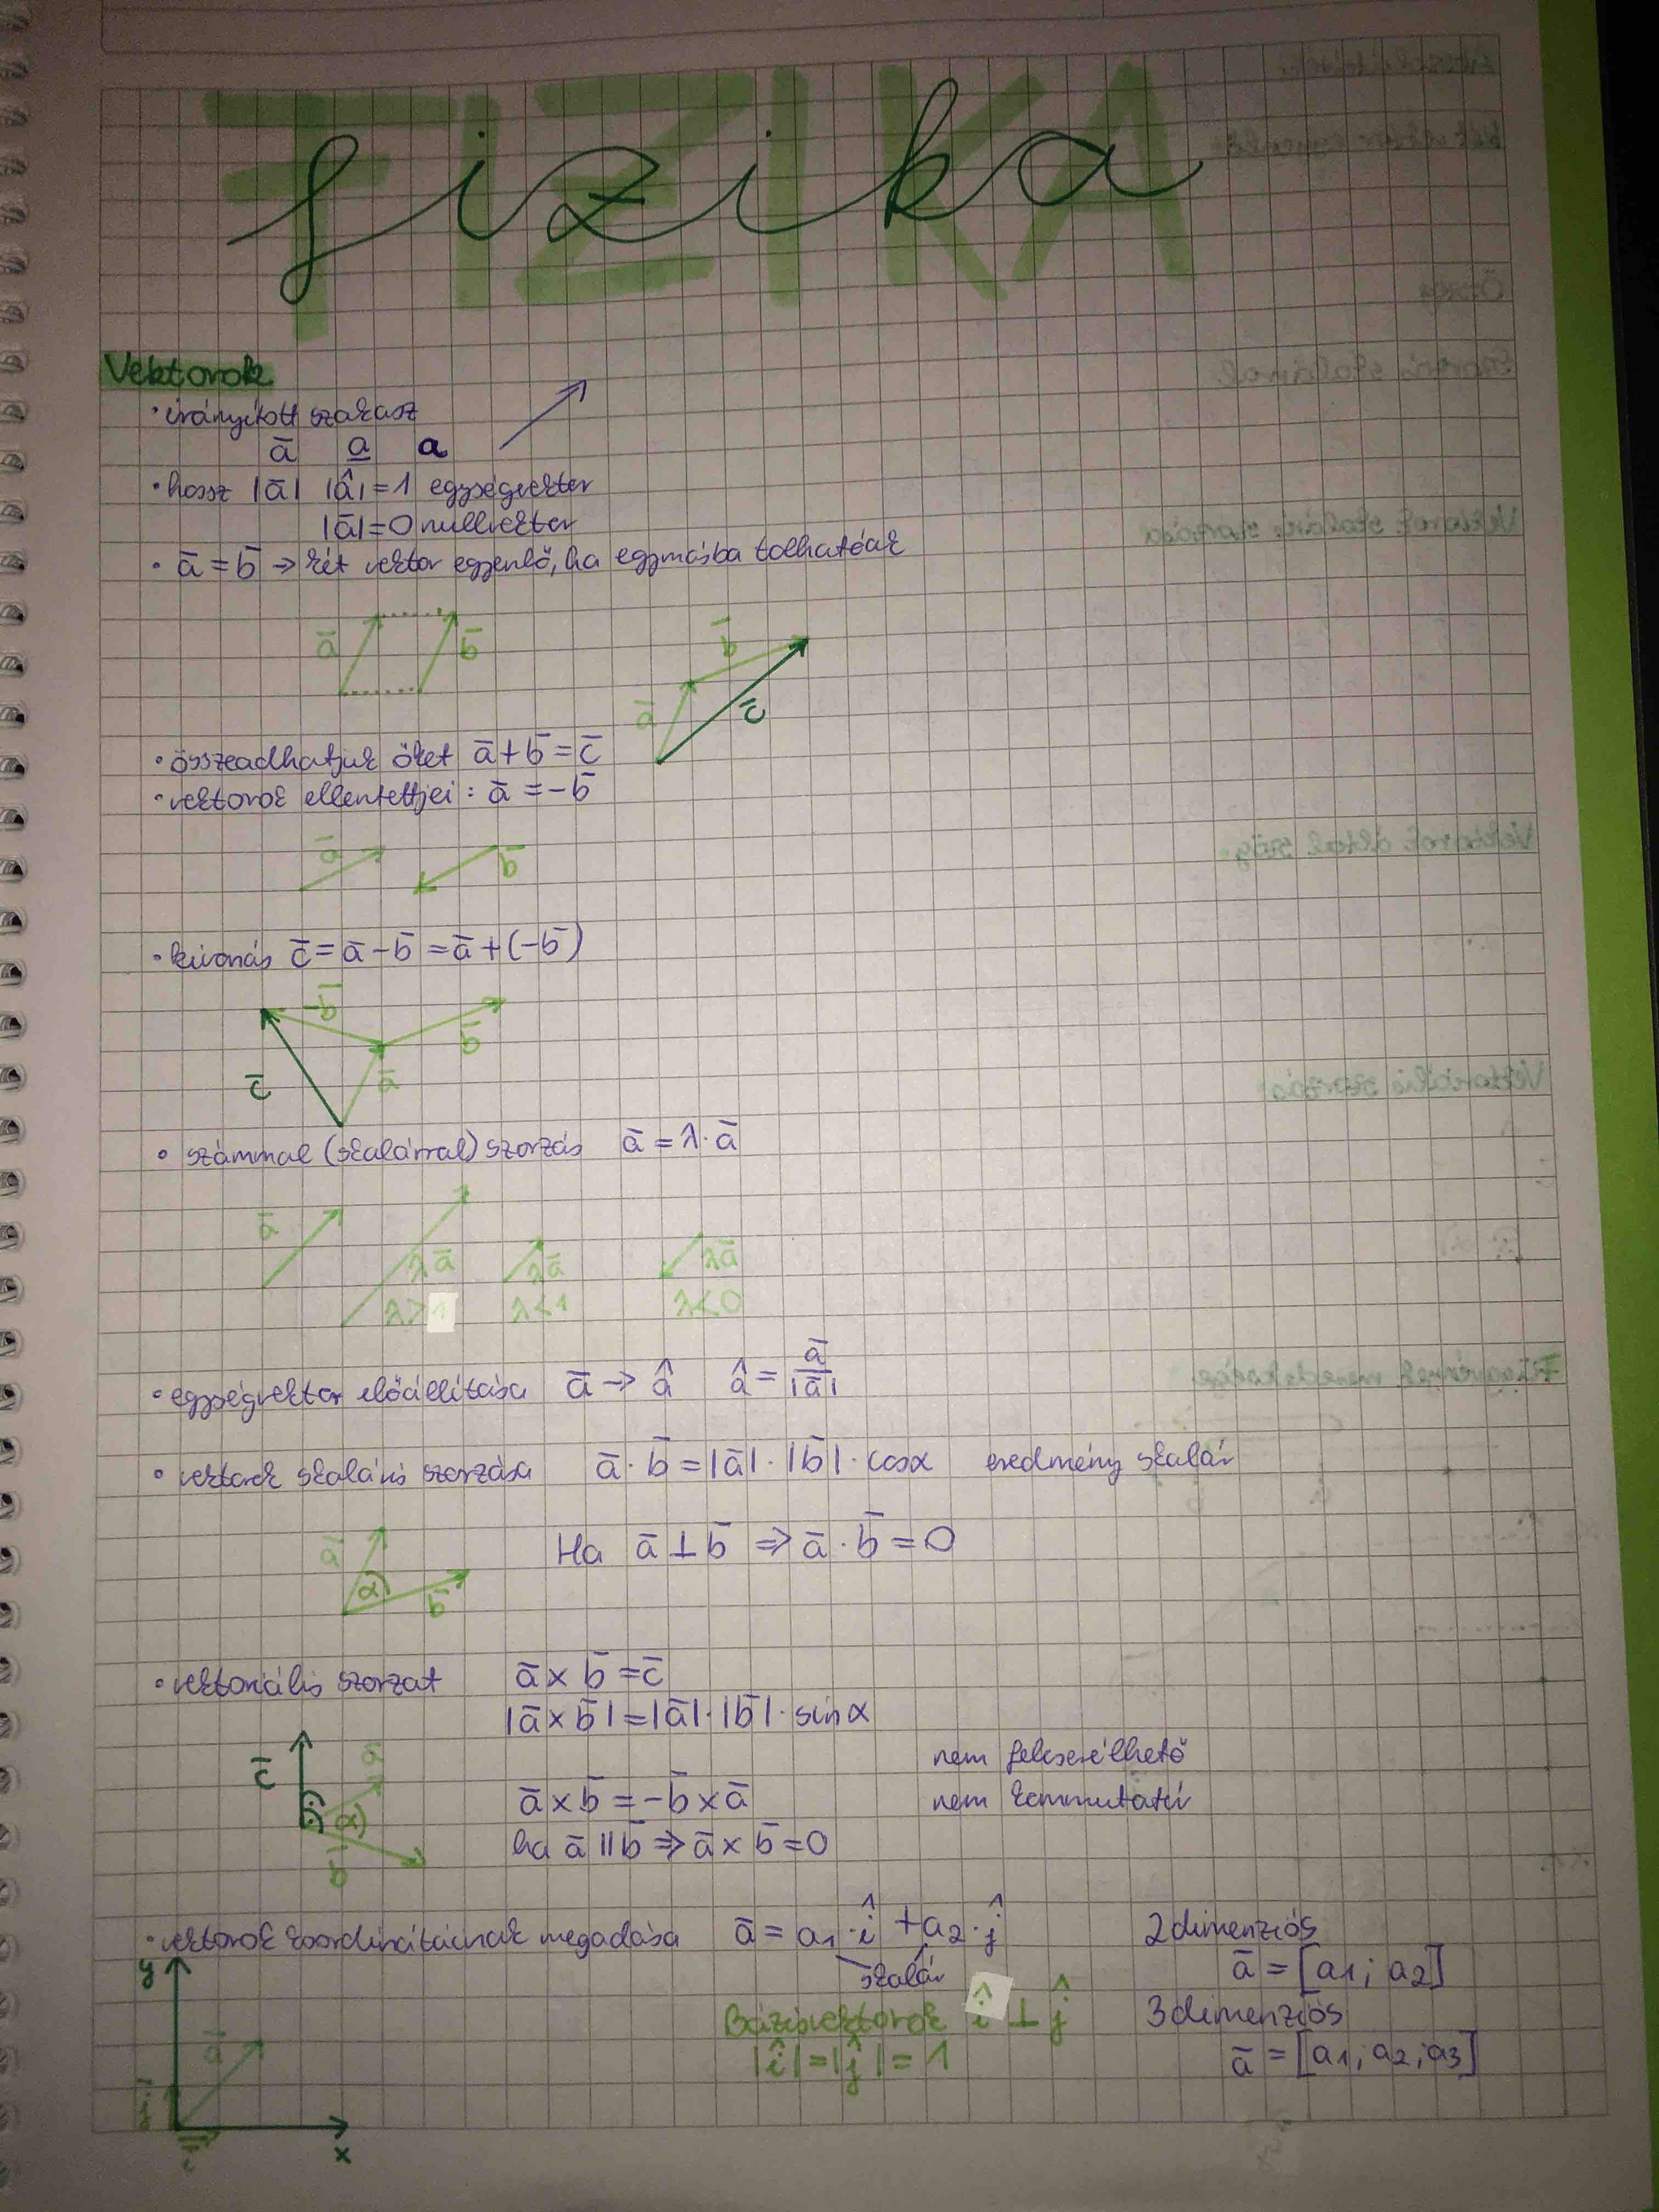 FIZIKA
fizika
Vektorok
• irányított szakasz
a̅ a̲ a
• hossz |a̅| |â|=1 egységvektor
|a̅|=0 nullvektor
• a̅=b̅ → két vektor egyenlő, ha egymásba tolhatóak
a̅ b̅
a̅ b̅ c̅
• összeadhatjuk őket a̅+b̅=c̅
• vektorok ellentettjei: a̅=-b̅
a̅ b̅
• kivonás c̅=a̅-b̅=a̅+(-b̅)
-b̅ b̅
c̅ a̅
• számmal (skalárral) szorzás a̅=λ·a̅
a̅ λa̅ λa̅ λa̅
λ>1 λ<1 λ<0
• egységvektor előállítása a̅→â â=a̅/|a̅|
• vektorok skaláris szorzása a̅·b̅=|a̅|·|b̅|·cosα eredmény skalár
a̅ α b̅
Ha a̅⊥b̅ ⇒ a̅·b̅=0
• vektoriális szorzat a̅×b̅=c̅
|a̅×b̅|=|a̅|·|b̅|·sinα
c̅ a̅ α b̅
nem felcserélhető
a̅×b̅=-b̅×a̅ nem kommutatív
ha a̅||b̅ ⇒ a̅×b̅=0
• vektorok koordinátáinak megadása a̅=a₁·î+a₂·ĵ 2dimenziós
skalár a̅=[a₁; a₂]
Bázisvektorok î⊥ĵ 3dimenziós
|î|=|ĵ|=1 a̅=[a₁; a₂; a₃]
y
a̅
x